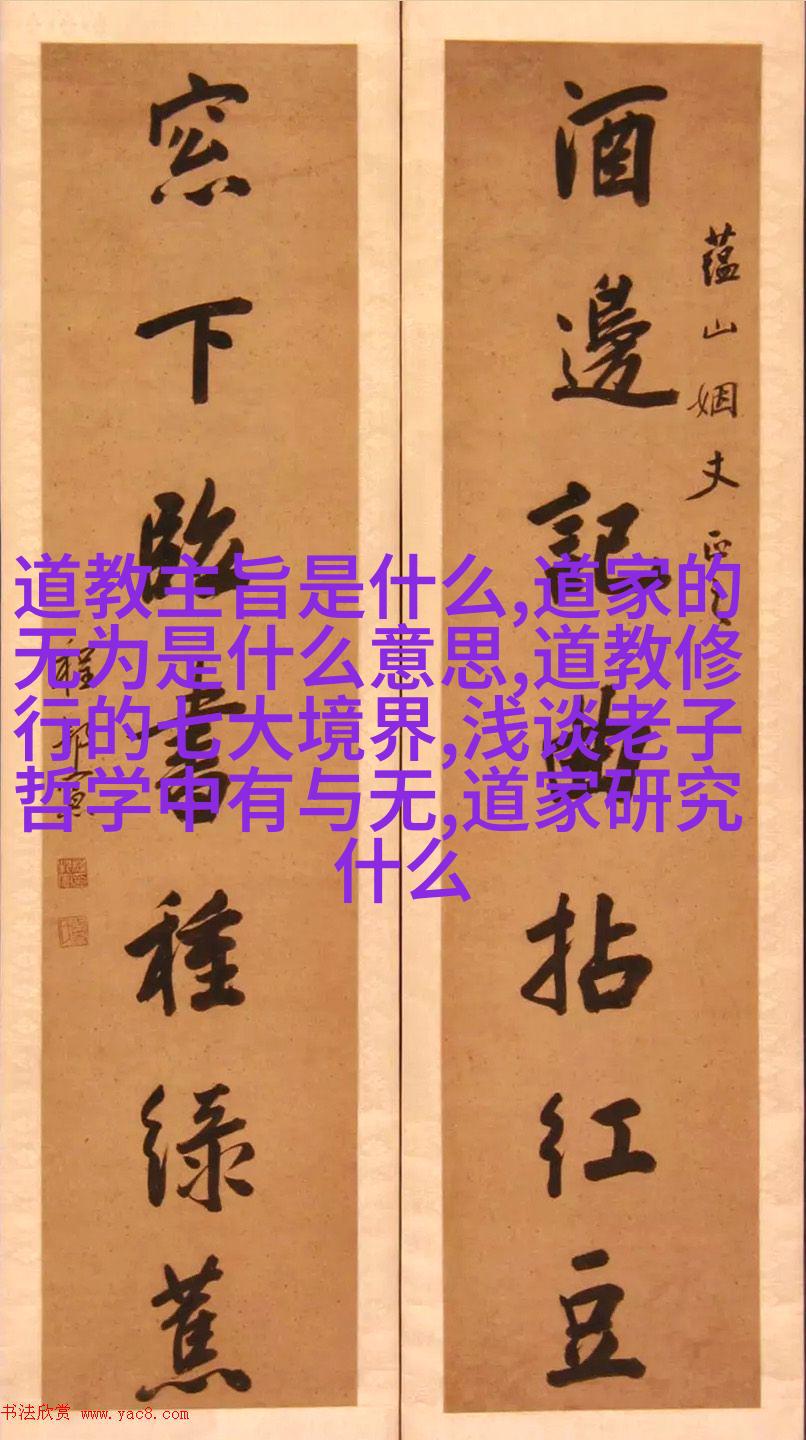 酒邊記曲拈紅豆
蕴山姻丈正之
窓下臨書種綠蕉
道教主旨是什么,道家的
无为是什么意思,道教修
行的七大境界,浅谈老子
哲学中有与无,道家研究
什么
书法欣赏 www.yac8.com